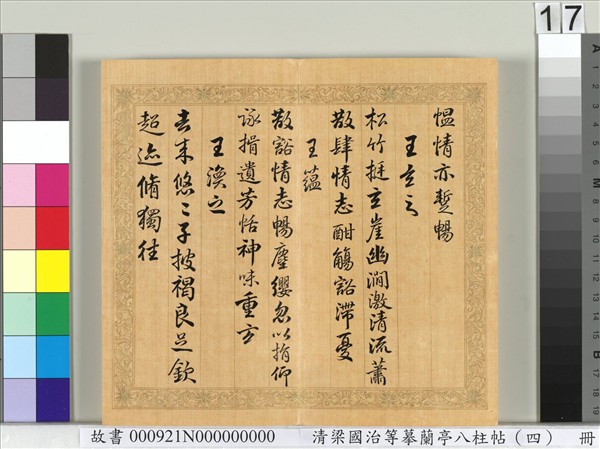 17
慍情亦蹔暢
王玄之
松竹挺玄崖幽澗激清流蕭
散肆情志酣觴豁滯憂
王蘊
散豁情志暢塵纓忽以捐仰
詠揖遺芳怡神味重玄
王渙之
去來悠〻子披褐良足欽
超迹脩獨往
故書 000921N000000000 清梁國治等摹蘭亭八柱帖(四) 冊